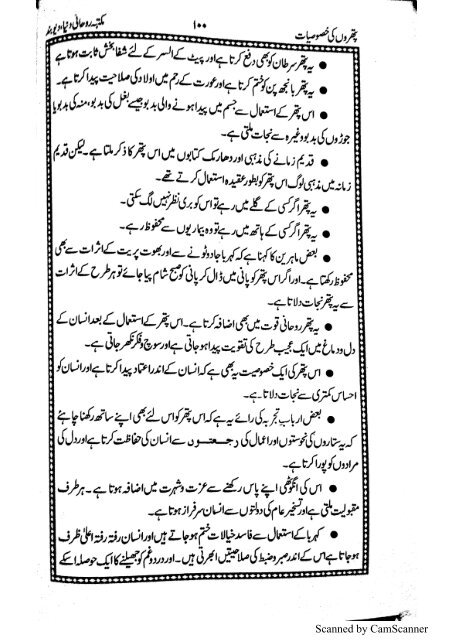 پتھروں کی خصوصیات ۱۰۰ مکتبہ روحانی دنیا، دیوبند
● یہ پتھر سرطان کو بھی دفع کرتا ہے اور پیٹ کے السر کے لئے شفا بخش ثابت ہوتا ہے
● یہ پتھر بانجھ پن کو ختم کرتا ہے اور عورت کے رحم میں اولاد کی صلاحیت پیدا کرتا ہے۔
● اس پتھر کے استعمال سے جسم میں پیدا ہونے والی بدبو جیسے بغل کی بدبو، منہ کی بدبو یا
جوڑوں کی بدبو وغیرہ سے نجات ملتی ہے۔
● قدیم زمانے کی مذہبی اور دھارمک کتابوں میں اس پتھر کا ذکر ملتا ہے۔ لیکن قدیم
زمانہ میں مذہبی لوگ اس پتھر کو بطور عقیدہ استعمال کرتے تھے۔
● یہ پتھر اگر کسی کے گلے میں رہے تو اس کو بری نظر نہیں لگ سکتی۔
● یہ پتھر اگر کسی کے ہاتھ میں رہے تو وہ بیماریوں سے محفوظ رہے۔
● بعض ماہرین کا کہنا ہے کہ کہربا جادو ٹونے سے اور بھوت پریت کے اثرات سے بھی
محفوظ رکھتا ہے۔ اور اگر اس پتھر کو پانی میں ڈال کر پانی کو صبح شام پیا جائے تو ہر طرح کے اثرات
سے یہ پتھر نجات دلاتا ہے۔
● یہ پتھر روحانی قوت میں بھی اضافہ کرتا ہے۔ اس پتھر کے استعمال کے بعد انسان کے
دل و دماغ میں ایک عجیب طرح کی تقویت پیدا ہو جاتی ہے اور سوچ و فکر نکھر جاتی ہے۔
● اس پتھر کی ایک خصوصیت یہ بھی ہے کہ انسان کے اندر اعتماد پیدا کرتا ہے اور انسان کو
احساس کمتری سے نجات دلاتا ہے۔
● بعض ارباب تجربہ کی رائے یہ ہے کہ اس پتھر کو اس لئے بھی اپنے ساتھ رکھنا چاہئے
کہ یہ ستاروں کی نحوستوں اور اعمال کی رجعتوں سے انسان کی حفاظت کرتا ہے اور دل کی
مرادوں کو پورا کرتا ہے۔
● اس کی انگوٹھی اپنے پاس رکھنے سے عزت و شہرت میں اضافہ ہوتا ہے۔ ہر طرف
مقبولیت ملتی ہے اور تسخیر عام کی دولتوں سے انسان سرفراز ہوتا ہے۔
● کہربا کے استعمال سے فاسد خیالات ختم ہو جاتے ہیں اور انسان رفتہ رفتہ اعلیٰ ظرف
ہو جاتا ہے اس کے اندر صبر و ضبط کی صلاحیتیں ابھرتی ہیں۔ اور درد و غم کو جھیلنے کا ایک حوصلہ اسکے
Scanned by CamScanner